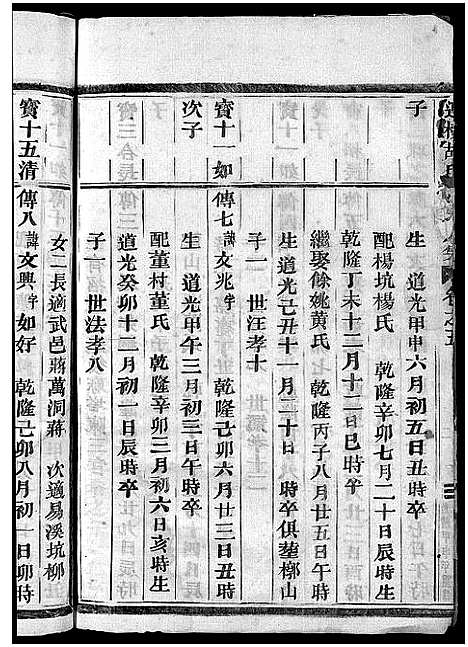 子
生 道光甲申六月初五日丑時卒
配楊坑楊氏 乾隆辛卯七月二十日辰時生
乾隆丁未十二月十二日巳時卒
繼娶餘姚黃氏 乾隆丙子八月廿五日午時
生 道光己丑十一月二十日 時卒俱塟㮲山
子一 世汪孝十
寳十一如 傳七 諱文兆 字 乾隆己卯六月廿三日丑時
次子
生 道光甲午三月初三日午時卒
配董村董氏 乾隆辛卯三月初六日亥時生
道光癸卯十二月初一日辰時卒
子一 世法孝八
女二長適武邑蔣萬洞蔣 次適易溪坑柳
寳十五清 傳八 諱文興 字如好 乾隆己卯八月初一日卯時